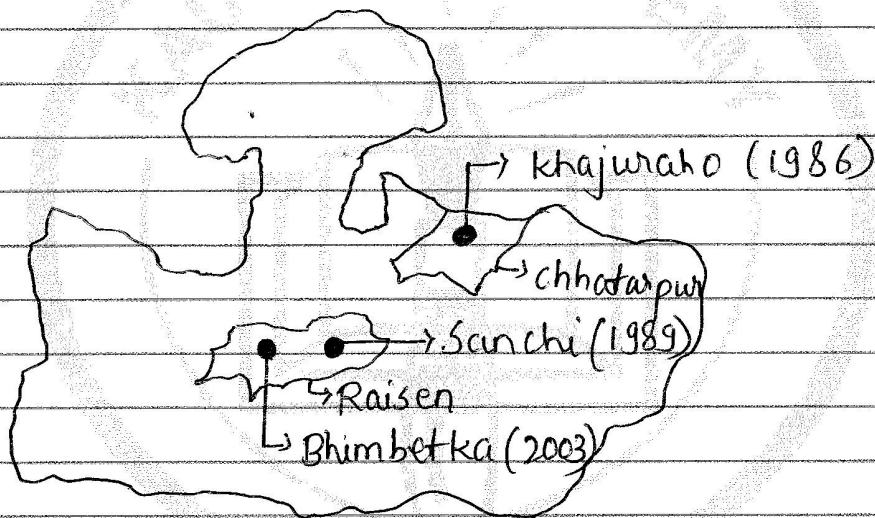 Khajuraho (1986)
Chhatarpur
Sanchi (1989)
Raisen
Bhimbetka (2003)